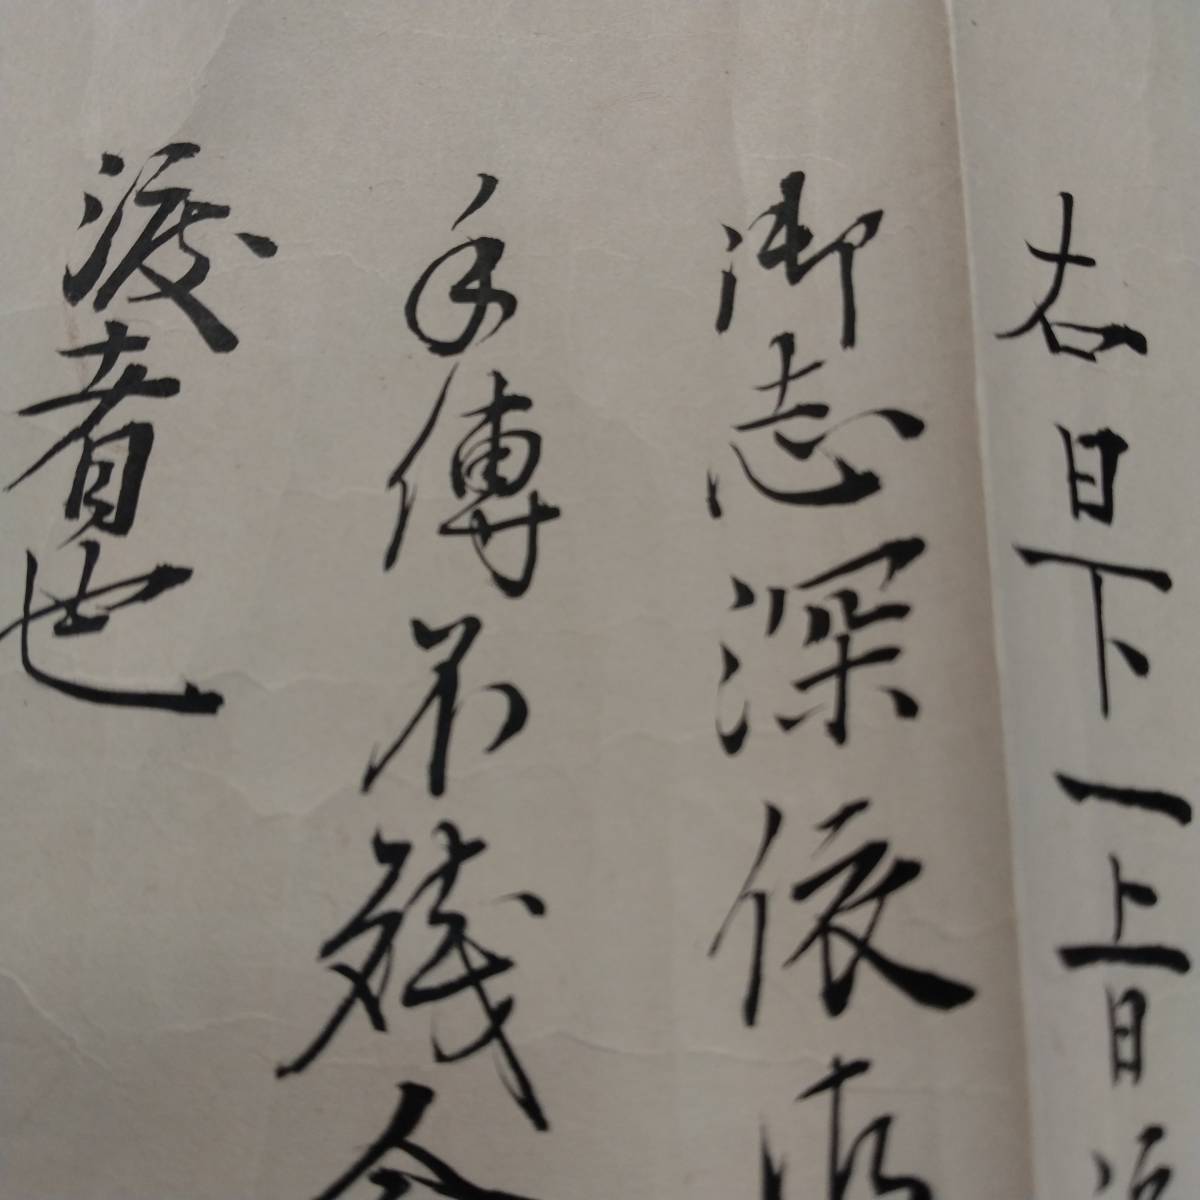 右日下一上日流
御志深依御
手傳不残令
渡者也